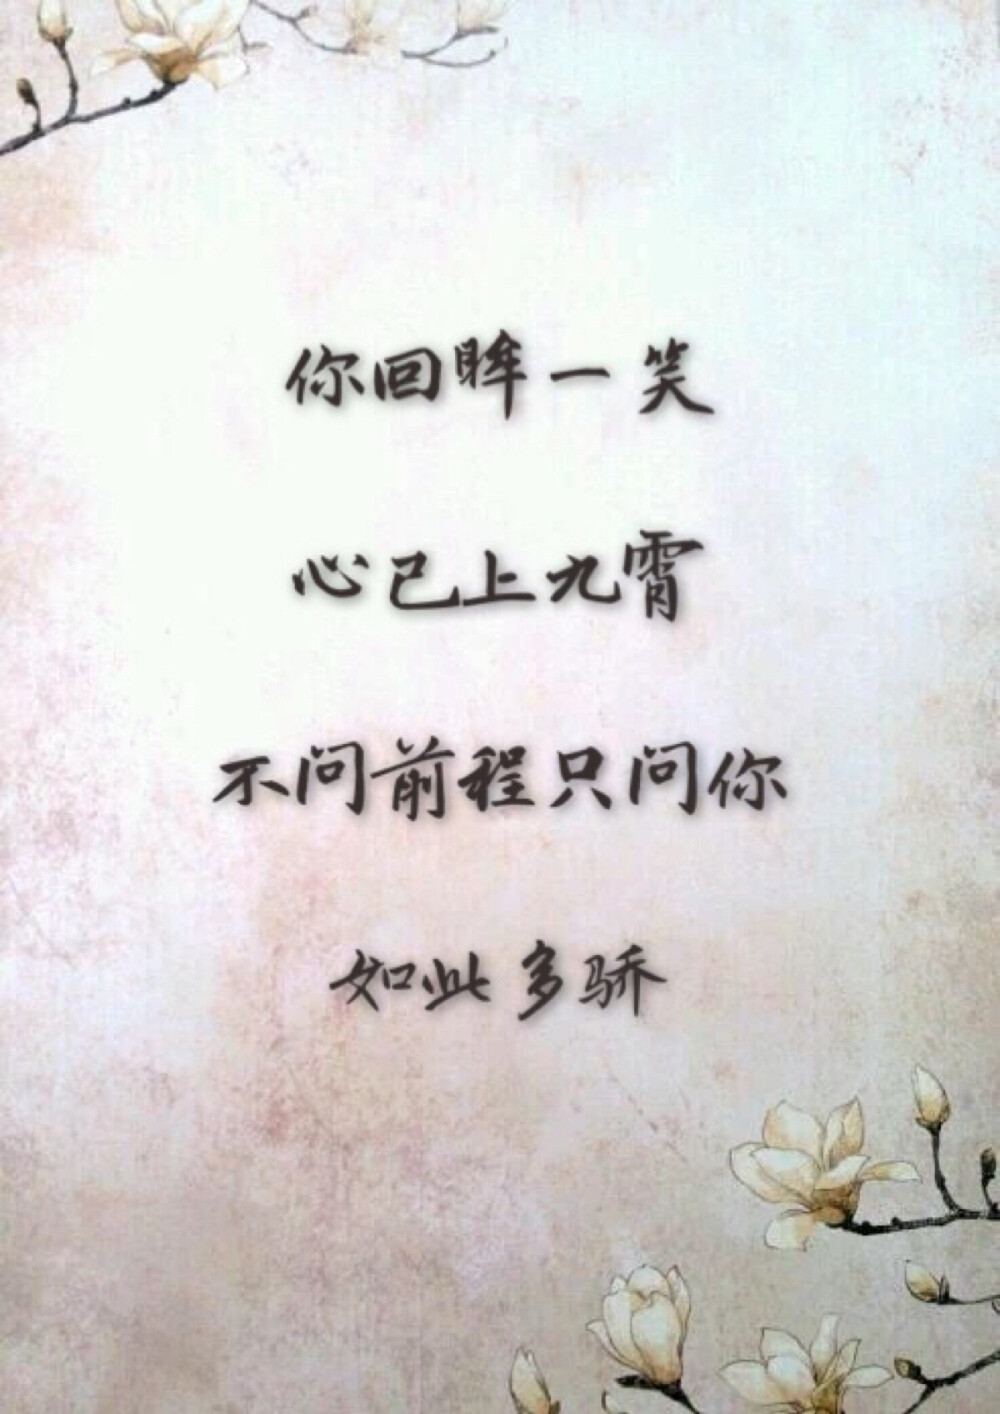 你回眸一笑
心已上九霄
不问前程只问你
如此多骄